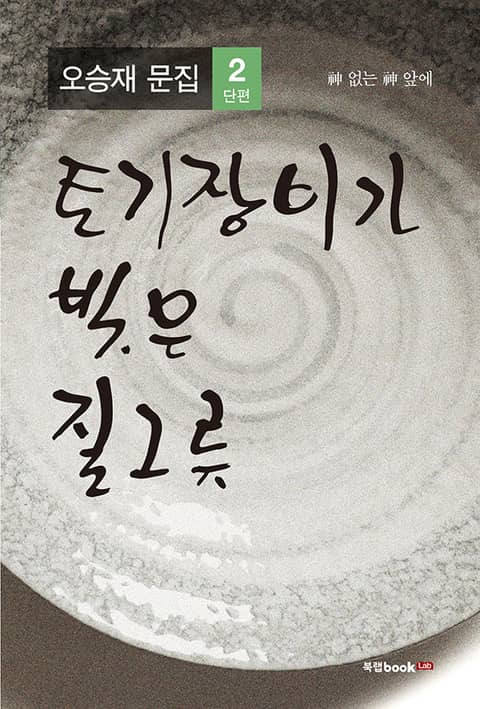 오승재 문집
2
단편
神 없는 神 앞에
토기장이가
빚은
질그릇
북랩book Lab